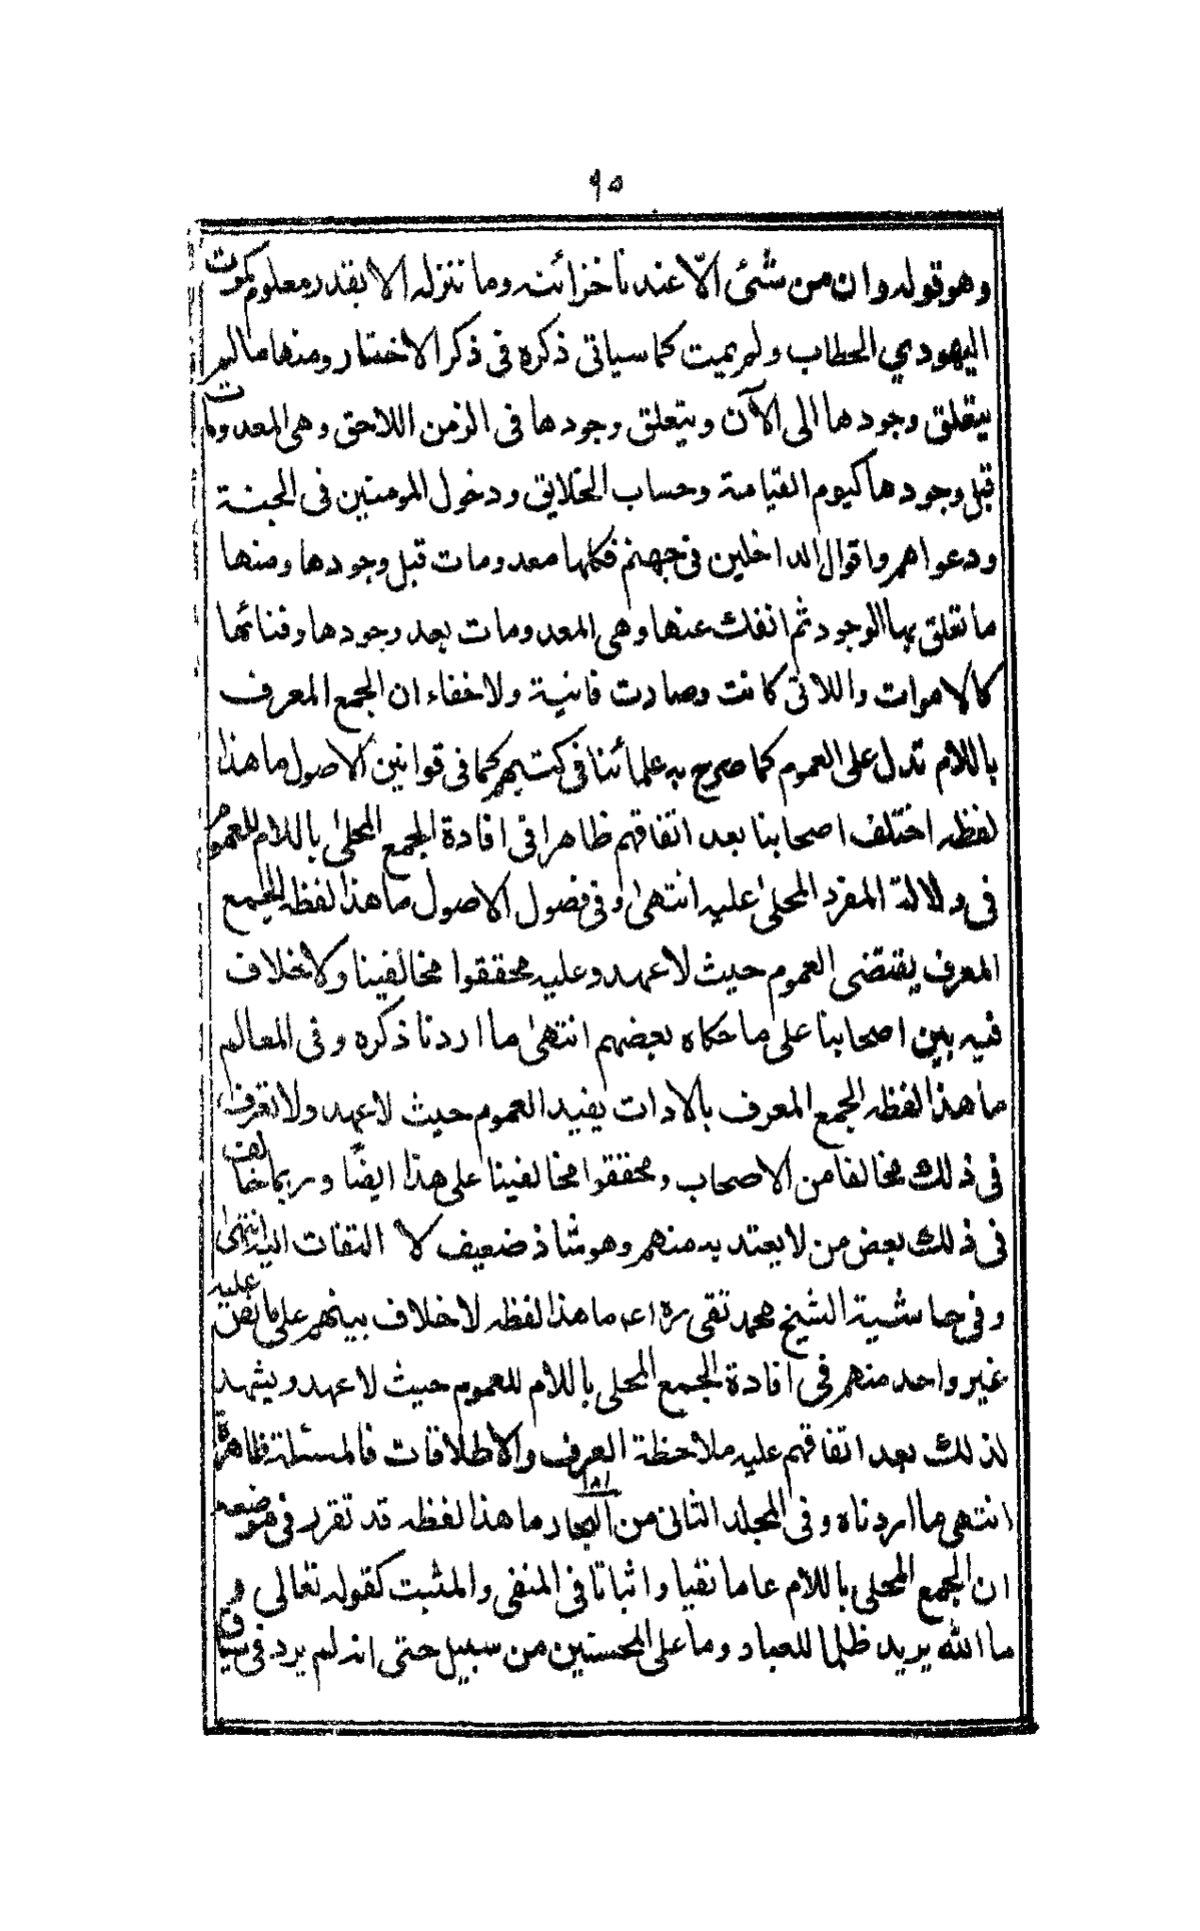 ٩٥
وهو قوله وان من شئ الّا عندنا خزائنه وما ننزله الا بقدر معلوم كموت
اليهودي الحطاب ولم يميت كما سياتى ذكره فى ذكر الاختبار ومنها ما لم
يتعلق وجودها الى الآن ويتعلق وجودها فى الزمن اللاحق وهى المعدومات
قبل وجودها كيوم القيامة وحساب الخلايق ودخول المومنين فى الجنة
ودعواهم واقوال الداخلين فى جهنم فكلها معدومات قبل وجودها ومنها
ما تعلق بها الوجود ثم انفك عنها وهى المعدومات بعد وجودها وفنائها
كالاموات واللاتى كانت وصارت فانية ولا خفاء ان الجمع المعرف
باللام تدل على العموم كما صرح به علمائنا فى كتبهم كما فى قوانين الاصول ما هذا
لفظه اختلف اصحابنا بعد اتفاقهم ظاهرا فى افادة الجمع المحلى باللام للعموم
فى دلالة المفرد المحلى عليه انتهى وفى فصول الاصول ما هذا لفظه الجمع
المعرف يقتضى العموم حيث لا عهد وعليه محققوا مخالفينا ولا خلاف
فيه بين اصحابنا على ما حكاه بعضهم انتهى ما اردنا ذكره وفى المعالم
ما هذا لفظه الجمع المعرف بالادات يفيد العموم حيث لا عهد ولا نعرف
فى ذلك مخالفا من الاصحاب ومحققوا مخالفينا على هذا ايضًا وربما خالف
فى ذلك بعض من لا يعتد به منهم وهو شاذ ضعيف لا التفات اليه انتهى
وفى حاشية الشيخ محمد تقى ره اعه ما هذا لفظه لا خلاف بينهم على ما نص عليه
غير واحد منهم فى افادة الجمع المحلى باللام للعموم حيث لا عهد ويشهد
لذلك بعد اتفاقهم عليه ملاحظة العرف والاطلاقات فالمسئلة ظاهرة
انتهى ما اردناه وفى المجلد الثانى من البحار ١٨١ ما هذا لفظه قد تقرر فى موضعه
ان الجمع المحلى باللام عاما نفيا واثباتا فى المنفى والمثبت كقوله تعالى و
ما الله يريد ظلما للعباد وما على المحسنين من سبيل حتى انه لم يرد فى سياق